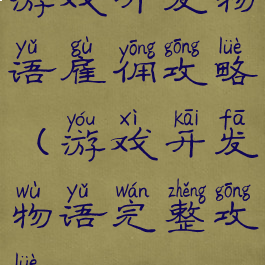 游戏开发物
yǔ gù yōng gōng lüè
语雇佣攻略
yóu xì kāi fā
（游戏开发
wù yǔ wán zhěng gōng
物语完整攻
lüè